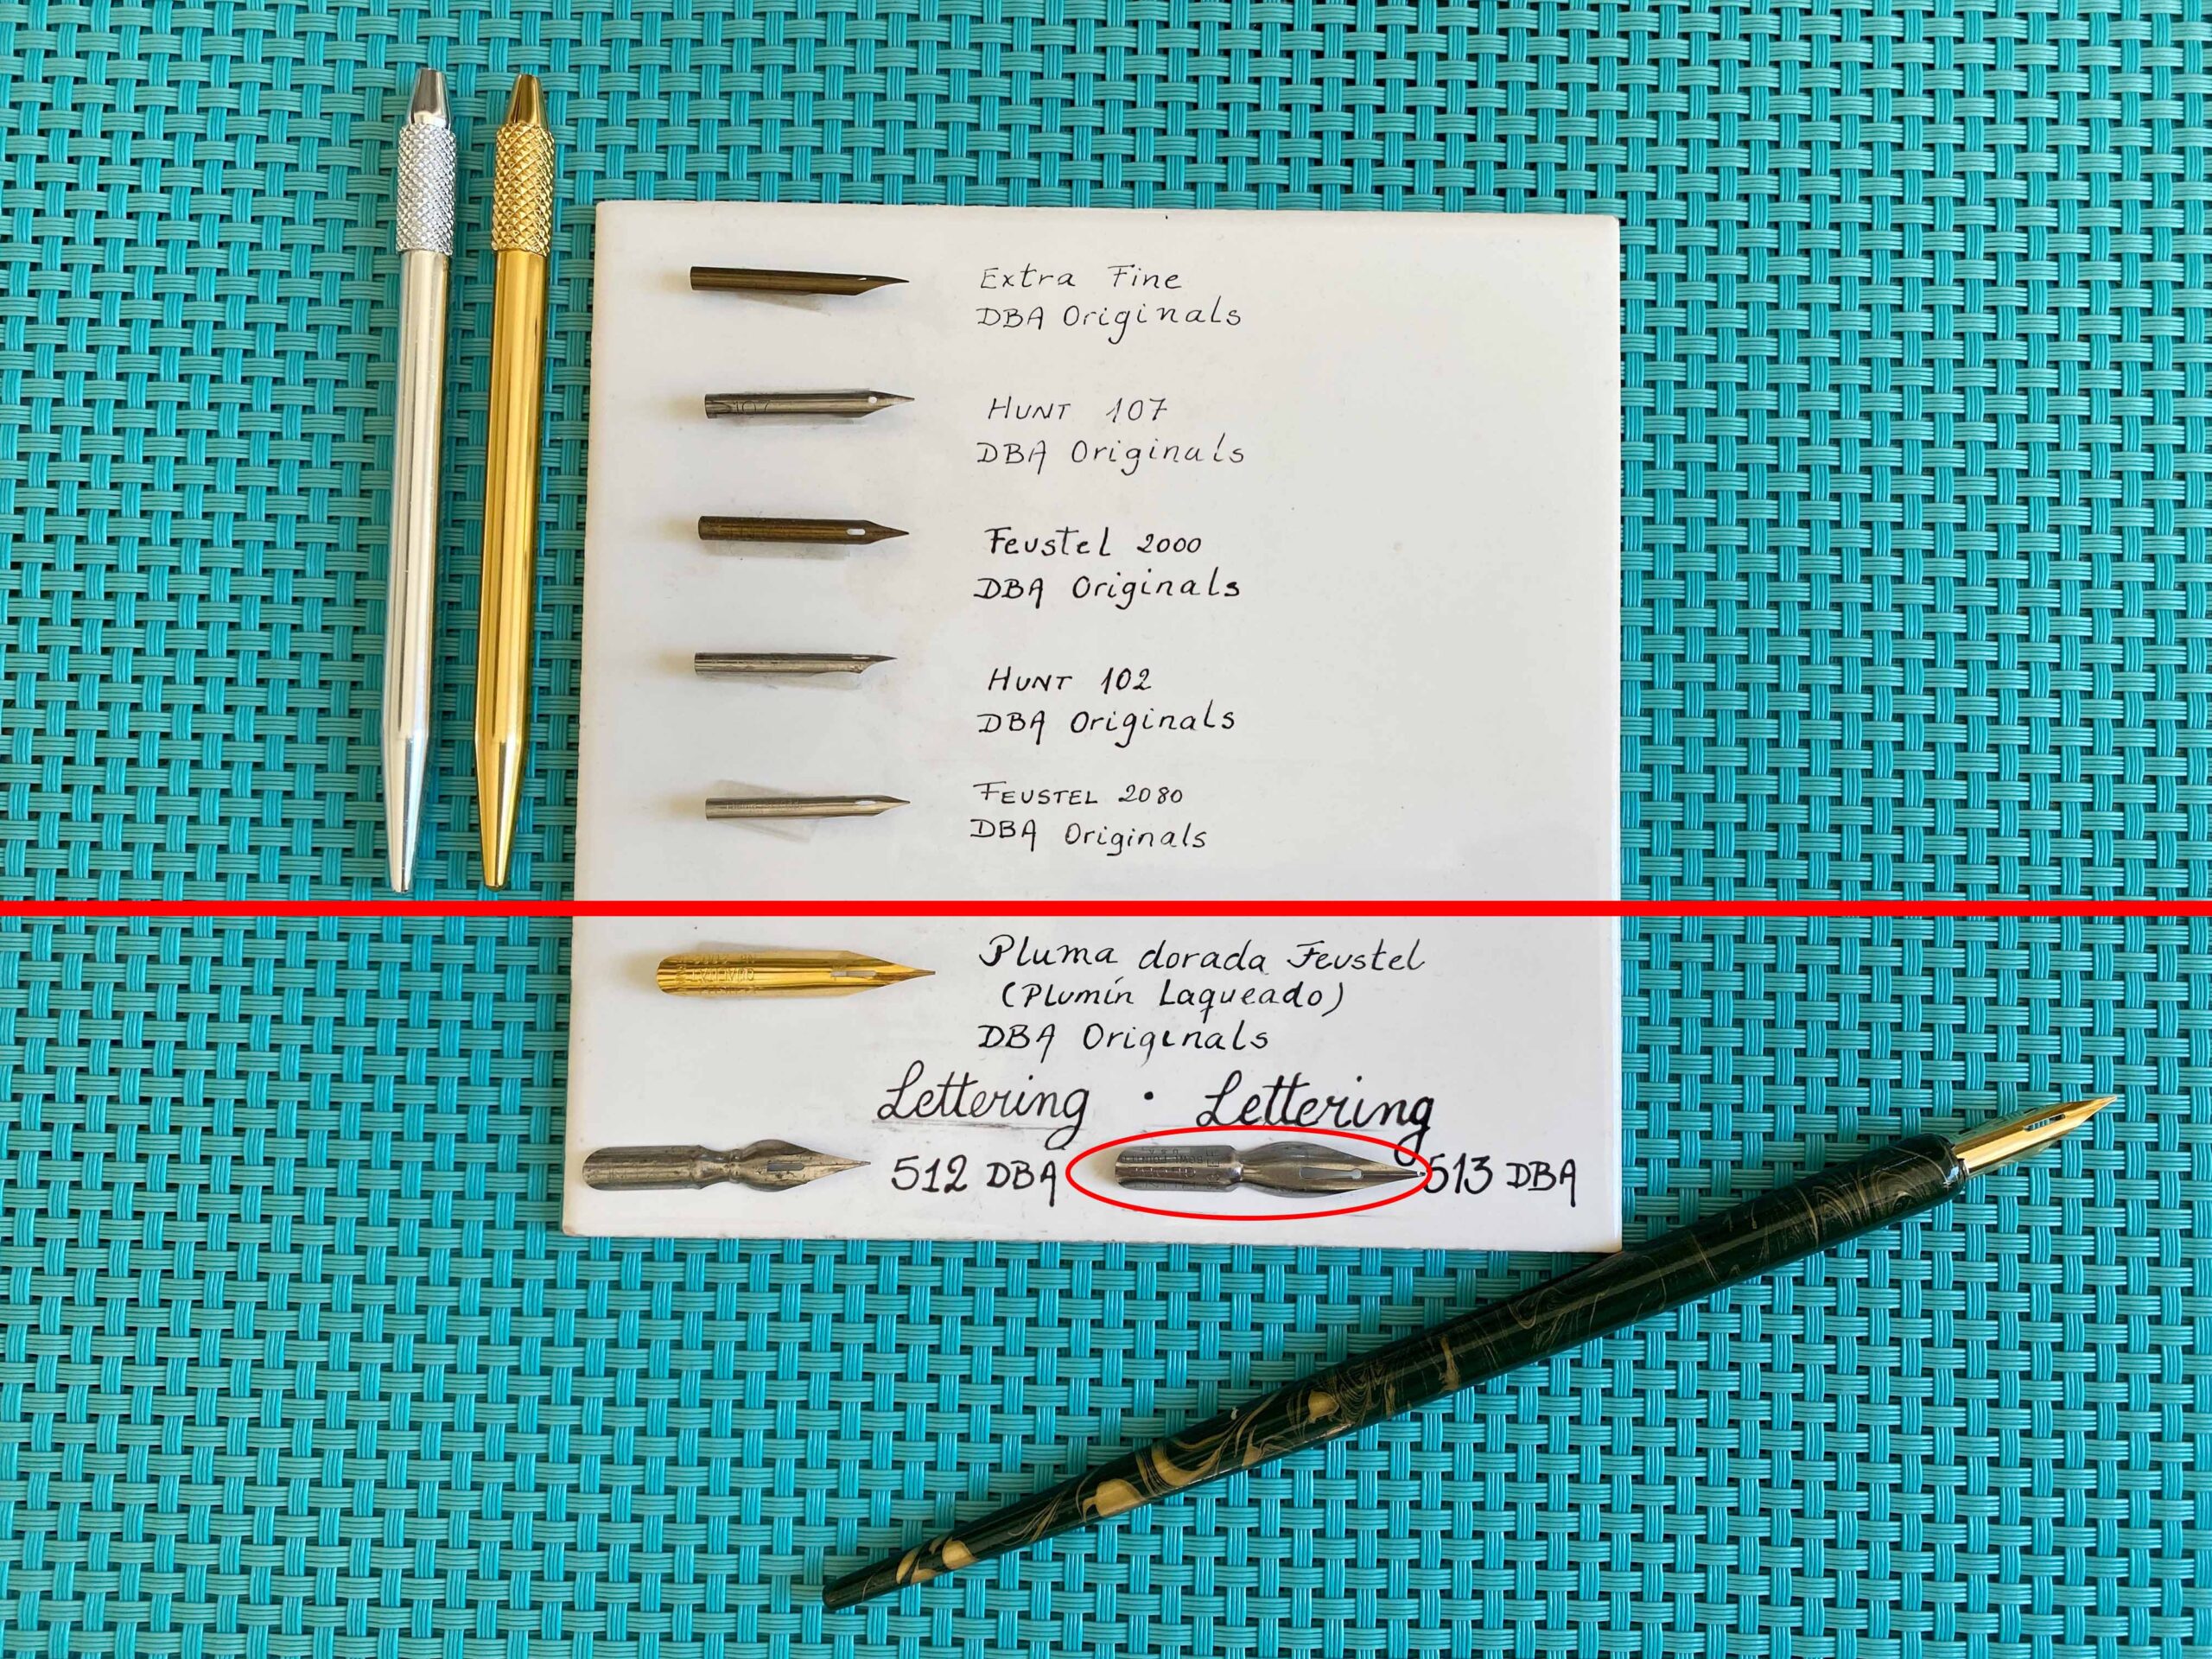 Extra Fine
DBA Originals
HUNT 107
DBA Originals
Feustel 2000
DBA Originals
HUNT 102
DBA Originals
FEUSTEL 2080
DBA Originals
Pluma dorada Feustel
(Plumín Laqueado)
DBA Originals
Lettering · Lettering
512 DBA 513 DBA